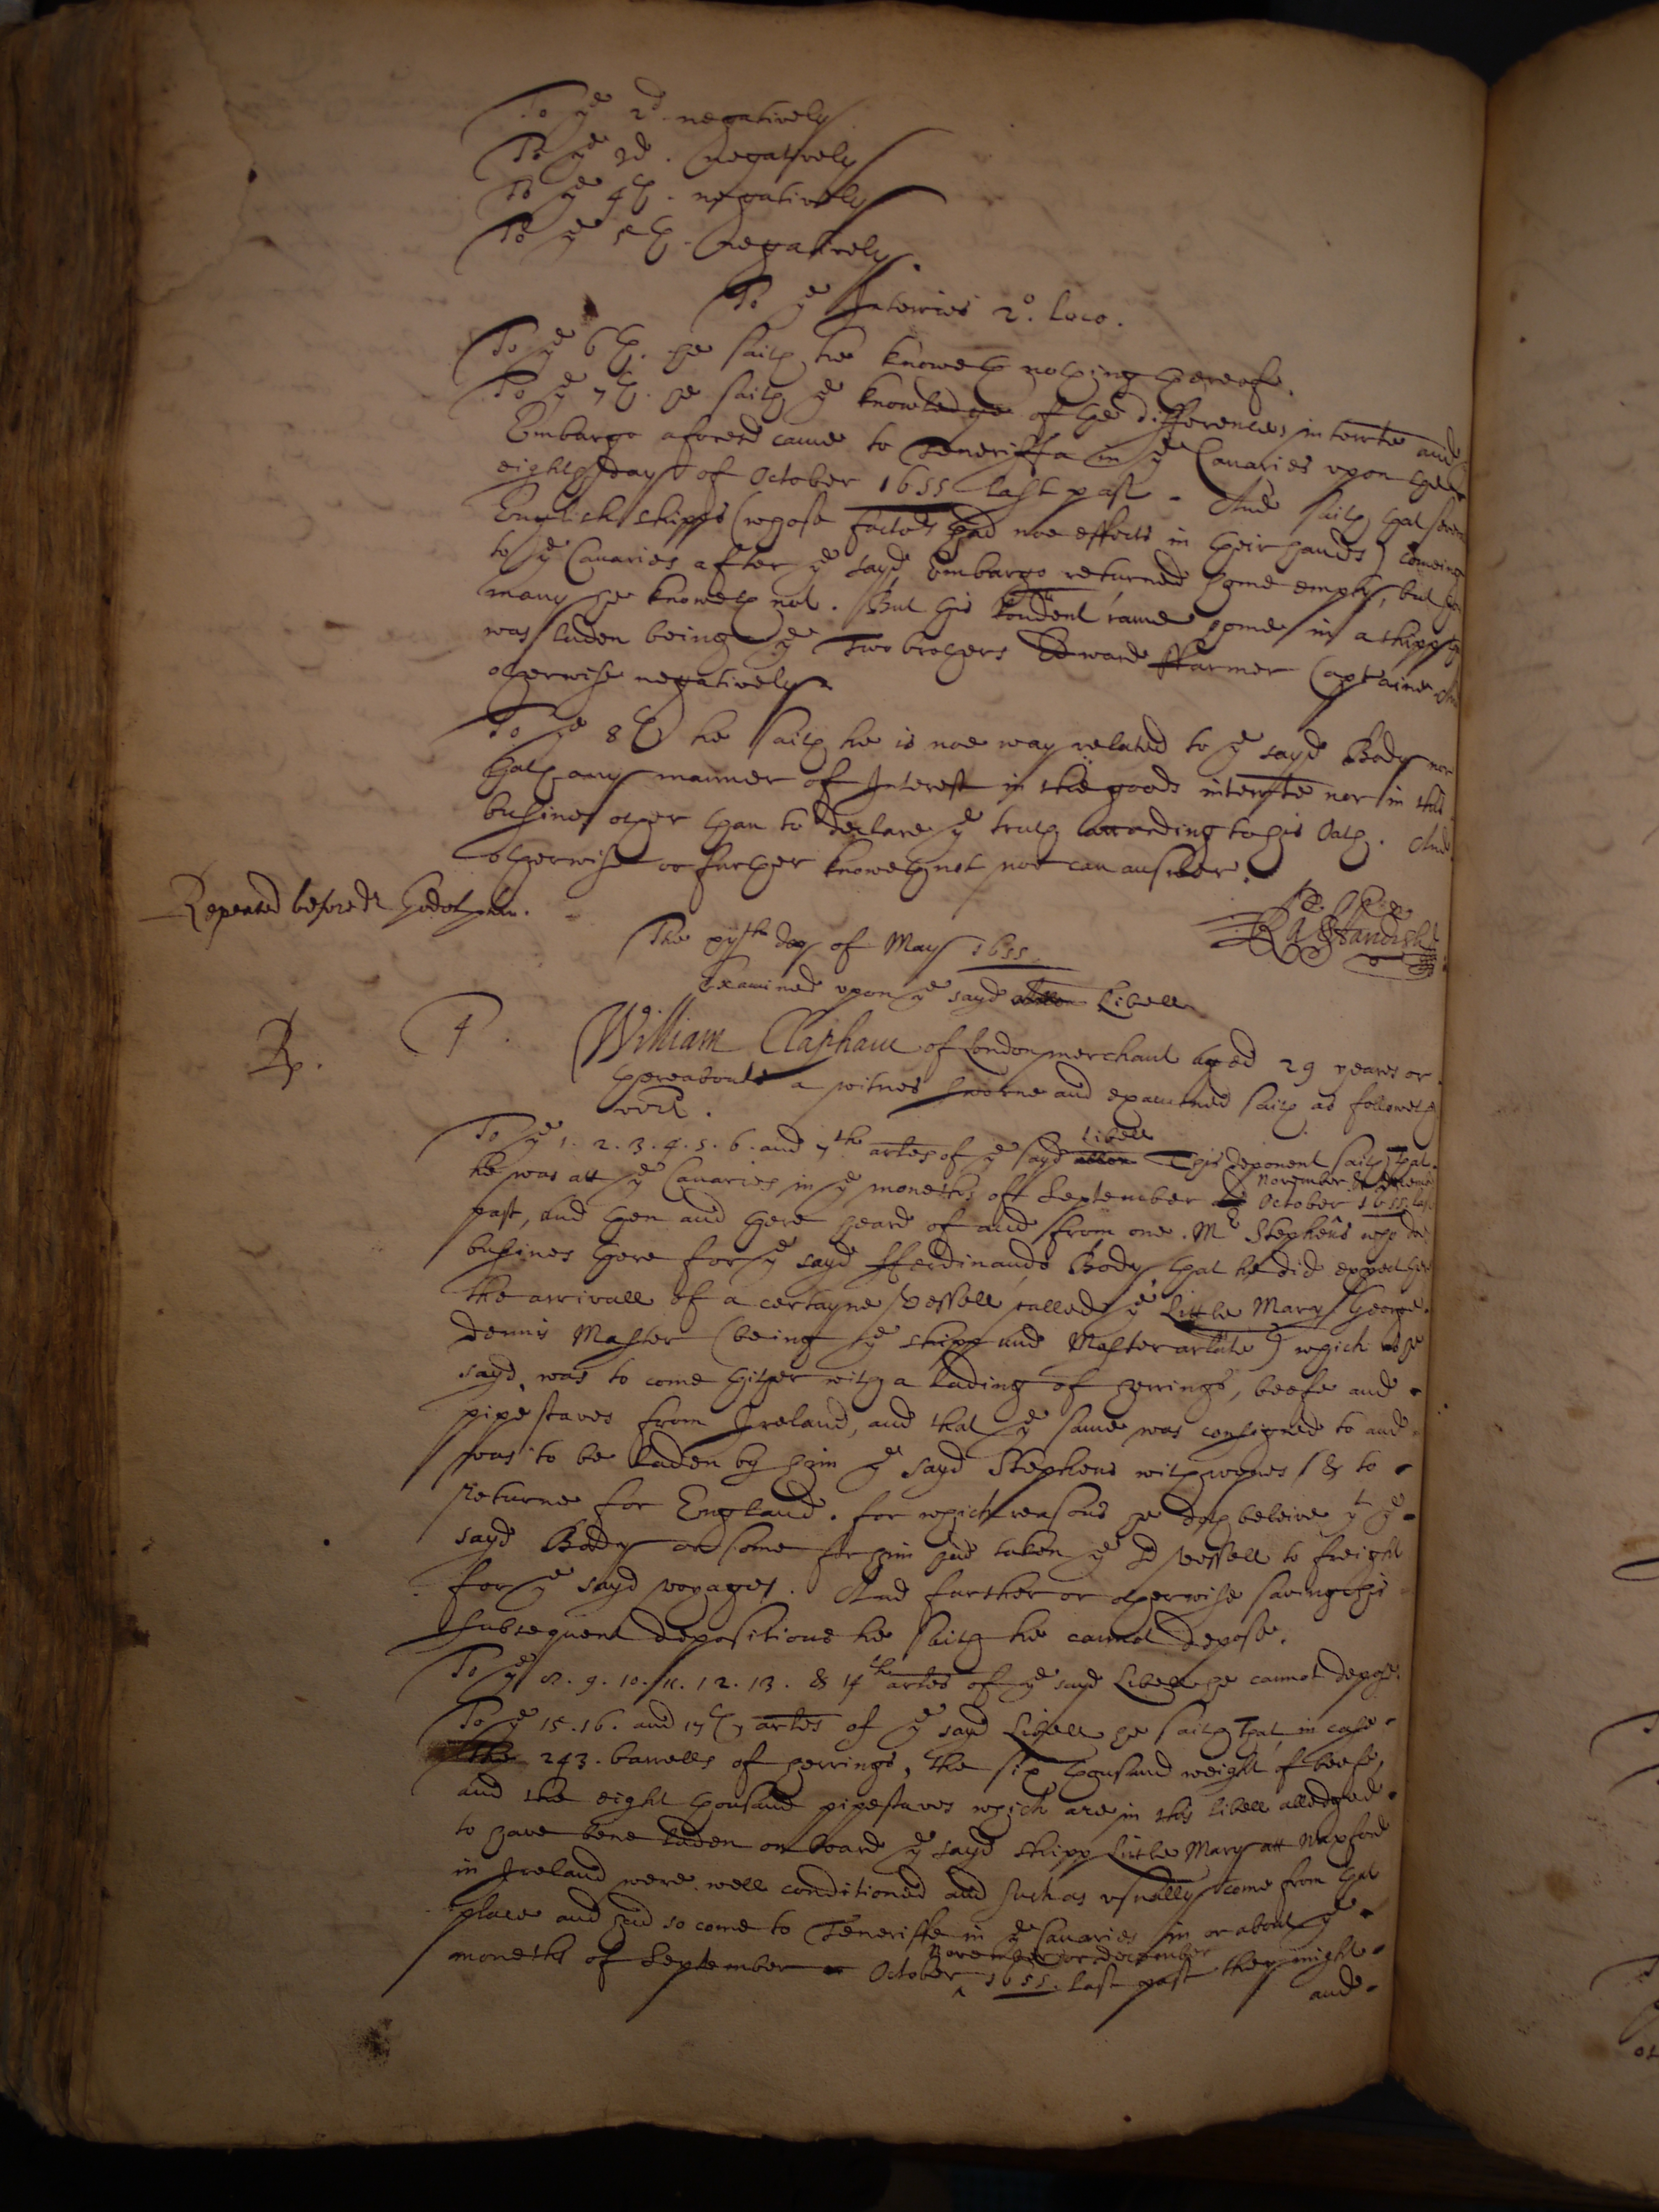 To ye 2d. negatively
To ye 3d. negatively
To ye 4th. negatively
To ye 5th. negatively.
To ye Interries 2o. loco.
To ye 6th. he saith he knoweth nothing thereof.
To ye 7th. he saith ye knowledge of the differences interrte and
Embargo aforesd came to Teneriffa in ye Canaries upon the
eighth day of October 1655 last past. And saith that seven
English shipps (whose factors had noe effects in their hands) comeing
to ye Canaries after ye sayd Embargo returned home empty, but how
many he knoweth not. But this rondent came home in a shipp that
was laden being ye Two brothers Edward ffarmer Captaine And
otherwise negatively
To ye 8th he saith he is noe way related to ye sayd Body nor
hath any manner of Interest in the goods interrte nor in this
busines other than to declare ye truth according to his Oath. And
otherwise or further knoweth not nor can answer.
Repeated before Dr Godolphin.
Ra: Standish
The xyth day of May 1655
Examined upon ye sayd allon Libell
Rp. 4.
William Clapham of London merchant aged 29 yeares or
thereabouts a witnes sworne and examined saith as followeth
vizt.
To ye 1. 2. 3. 4. 5. 6. and 7th artes of ye sayd allon Libell This deponent saith that
he was att ye Canaries in ye moneths of September and October November & December 1655 last
past, and then and there heard of and from one Mr Stephens who did
busines there for ye sayd Ferdinando Body that he did expect there
the arrivall of a certayne vessell called ye Little Mary George
Dennis Master (being ye shipp and Master arlate) which as he
sayd, was to come thither with a lading of herrings, beefe and
pipe staves from Ireland, and that ye same was consigned to and
was to be laden by him ye sayd Stephens with wynes & to
returne for England. for which reasons he doth beleive yt ye
sayd Body or some for him had taken ye sd vessell to freight
for ye sayd voyages. And further or otherwise saving his
subsequent depositions he saith he cannot depose.
To ye 8. 9. 10. 11. 12. 13. & 14th artes of ye sayd Libell he cannot depose.
To ye 15. 16. and 17th artes of ye sayd Libell he saith that in case
the 243. barrells of herrings, the six thousand weight of beefe,
and the eight thousand pipestaves which are in this libell alledged
to have bene laden on board ye sayd shipp Little Mary att Waxford
in Ireland were well conditioned and such as usually come from that
place and had so come to Teneriffe in ye Canaries in or about ye
moneths of September or October November or december 1655. last past they might
and